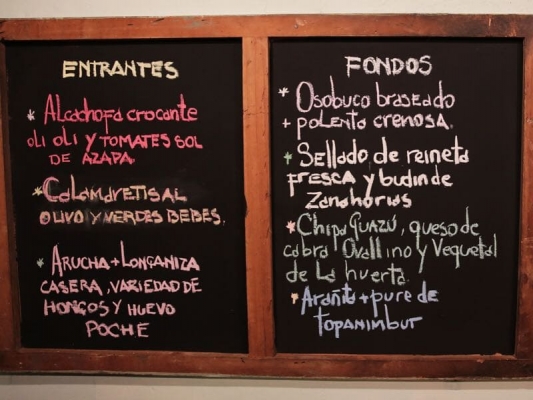 ENTRANTES
* Alcachofa crocante
oli oli y TOMATES SOL
DE AZAPA.
* Calamaretis AL
OLIVO Y VERDES BEBES.
* ARUCHA + LONGANIZA
CASERA, VARIEDAD DE
HONGOS Y HUEVO
POCHE
FONDOS
* Osobuco braseado
+ polenta cremosa.
+ Sellado de reineta
fresca y budin de
Zanahorias
* Chipa GUAZÚ, queso de
cabra Ovallino y Vegetal
de La huerta.
* Aranita + pure de
topanimbur